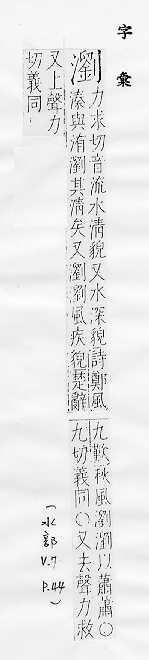 字彙
瀏
力求切音流水清貌又水深貌詩鄭風
溱與洧瀏其清矣又瀏瀏風疾貌楚辭
九歎秋風瀏瀏以蕭蕭〇
又去聲力救
九切義同〇
又上聲力
切義同
(水部
V.7
P.44)